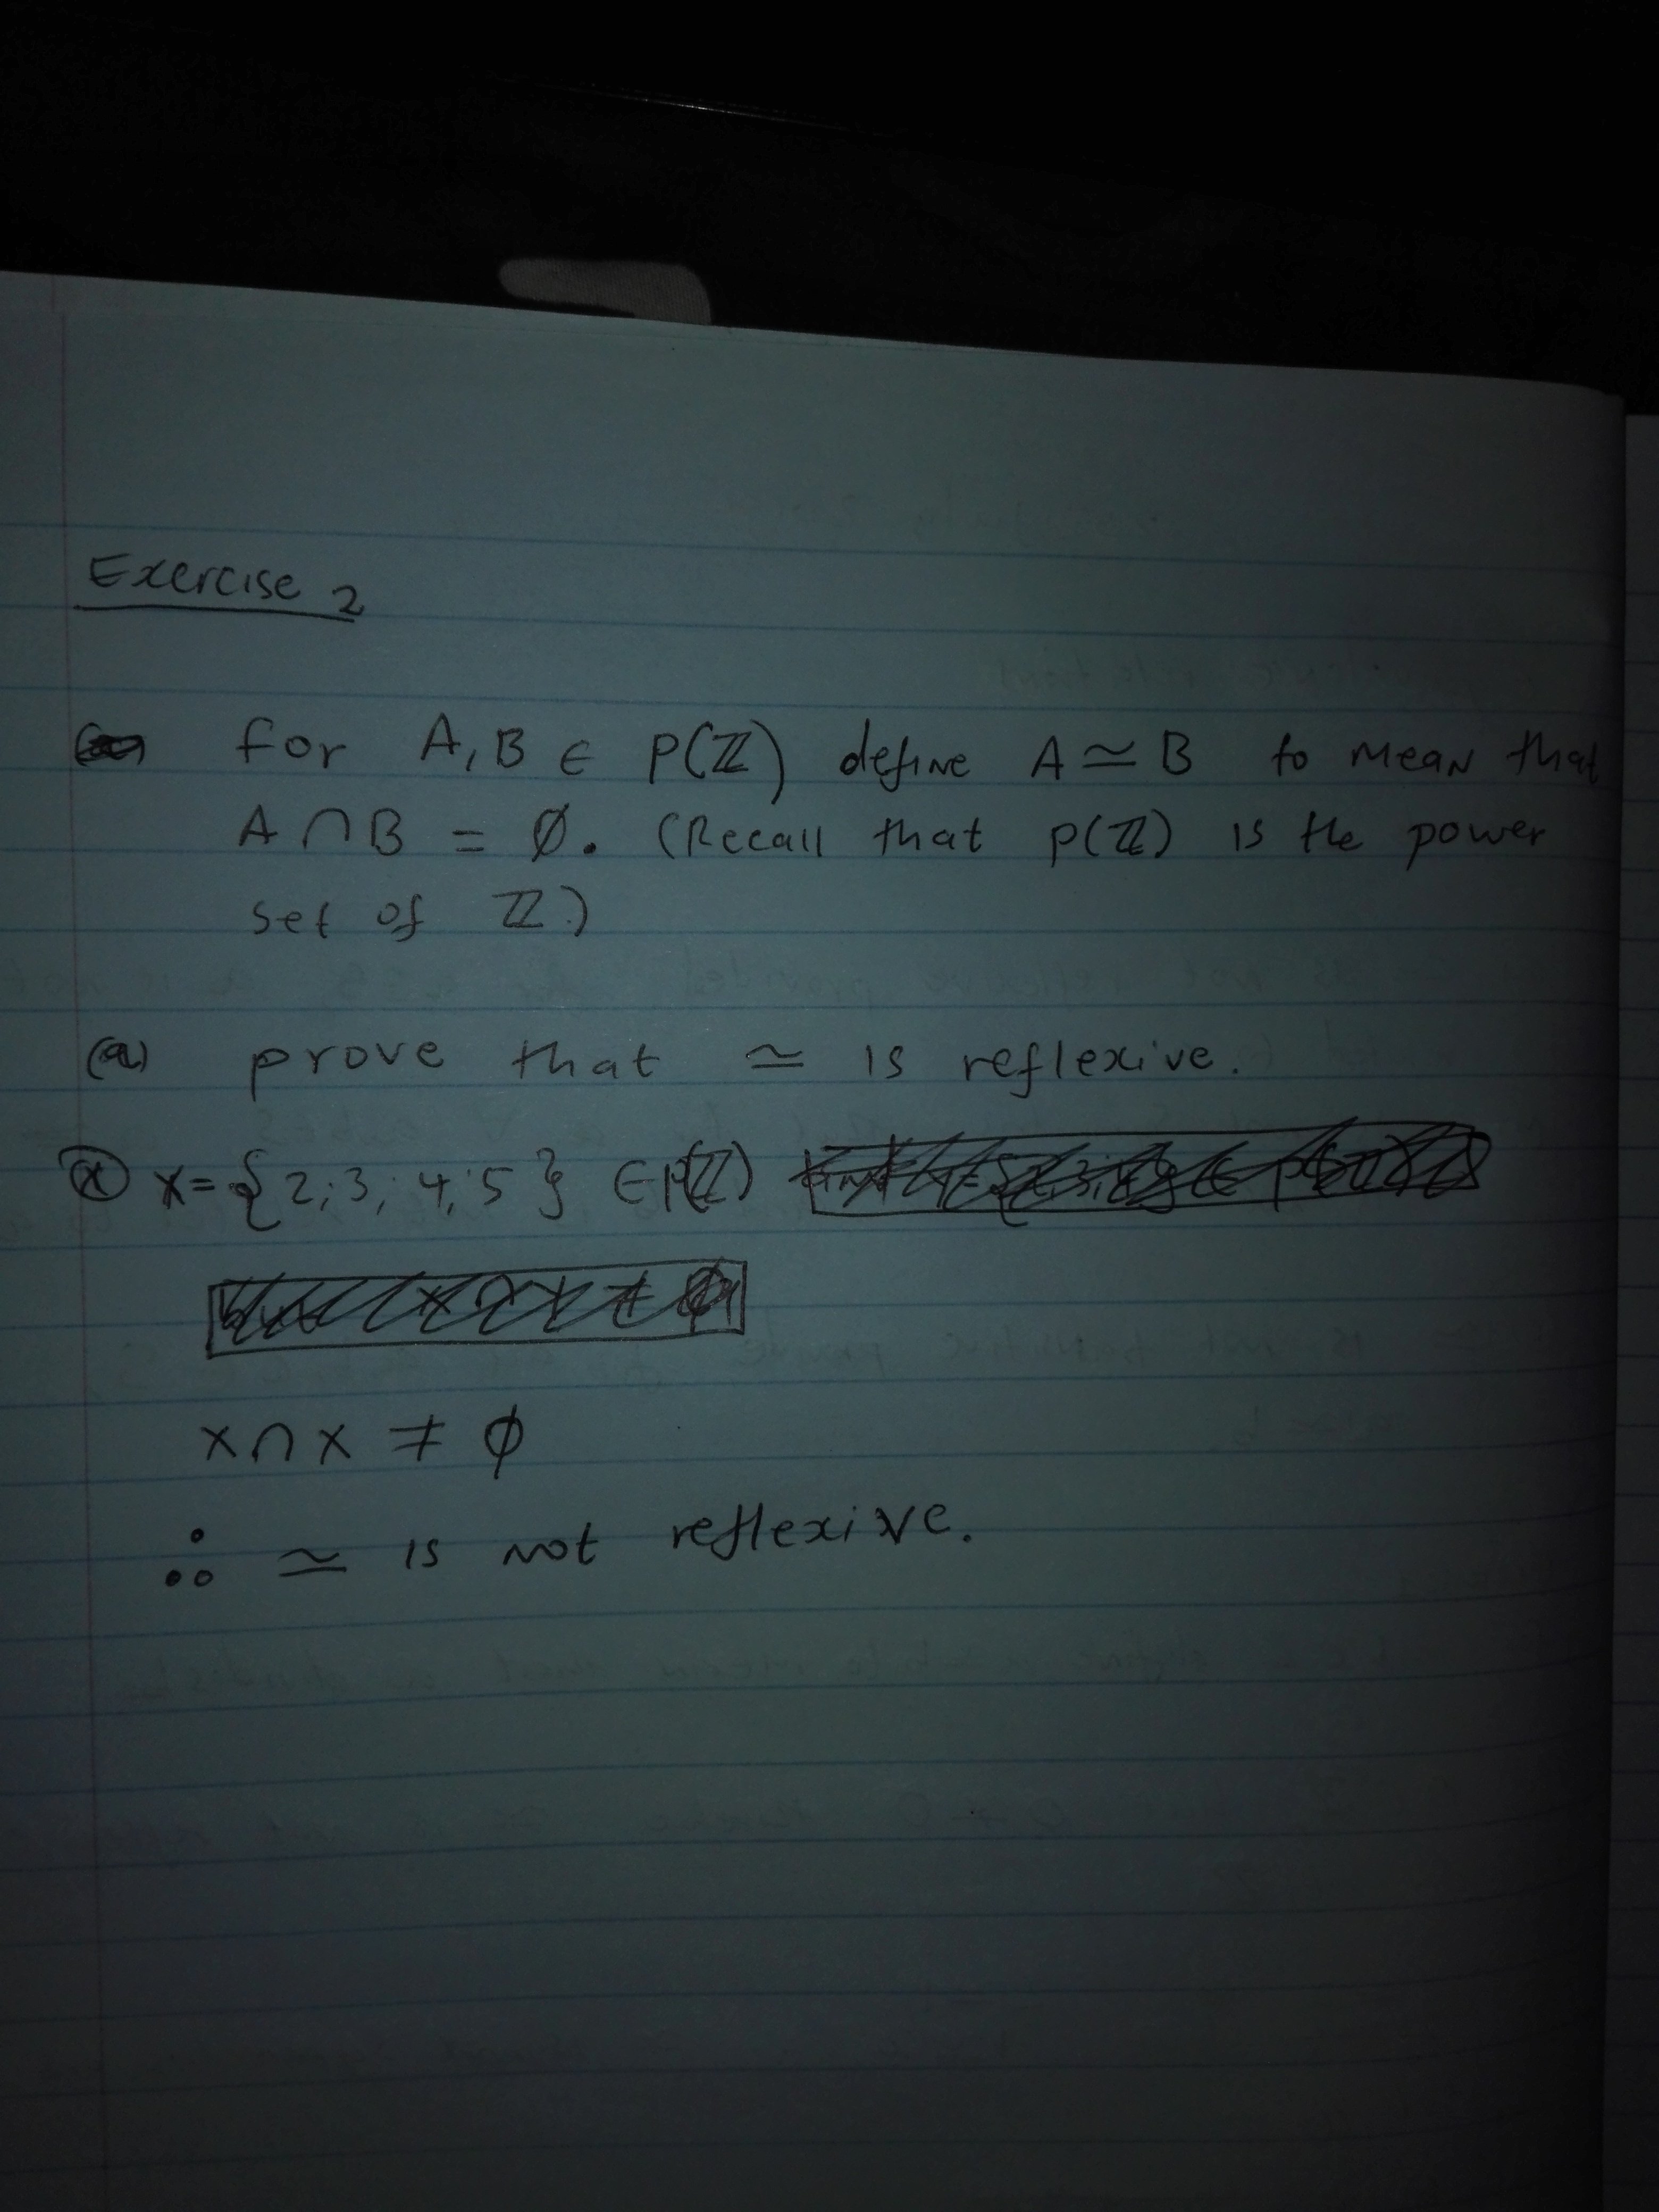 Exercise 2
for A, B ∈ P(ℤ) define A ≃ B to mean that
A ∩ B = Ø. (Recall that p(ℤ) is the power
set of ℤ.)
(a) prove that ≃ is reflexive.
(a) x = {2; 3; 4; 5} ∈ P(ℤ)
x ∩ x ≠ Ø
∴ ≃ is not reflexive.